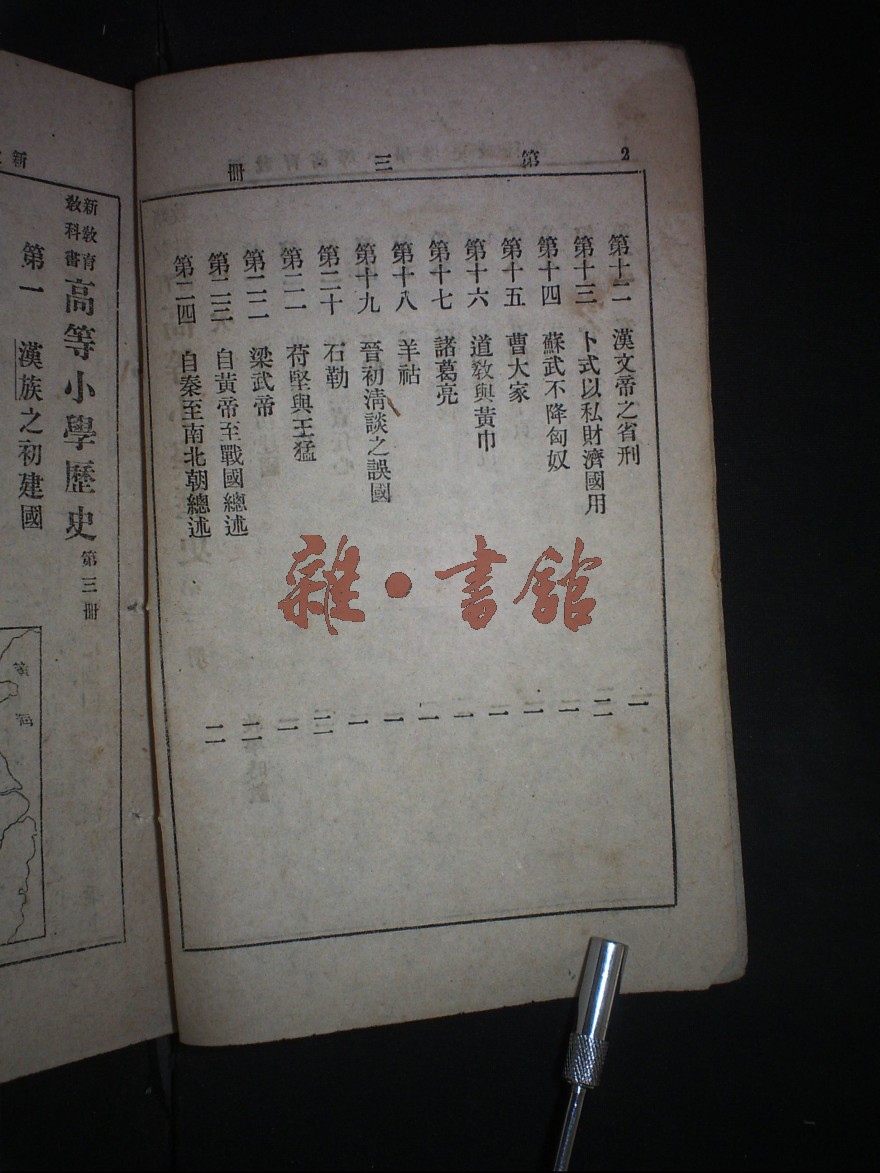 2 第三冊
第十二 漢文帝之省刑 一
第十三 卜式以私財濟國用 二
第十四 蘇武不降匈奴 一
第十五 曹大家 一
第十六 道教與黃巾 一
第十七 諸葛亮 一
第十八 羊祜 一
第十九 晉初淸談之誤國 一
第二十 石勒 二
第二一 苻堅與王猛 一
第二二 梁武帝 二
第二三 自黃帝至戰國總述 二
第二四 自秦至南北朝總述
雜·書館
新
新教育教科書 高等小學歷史 第三冊
第一 漢族之初建國